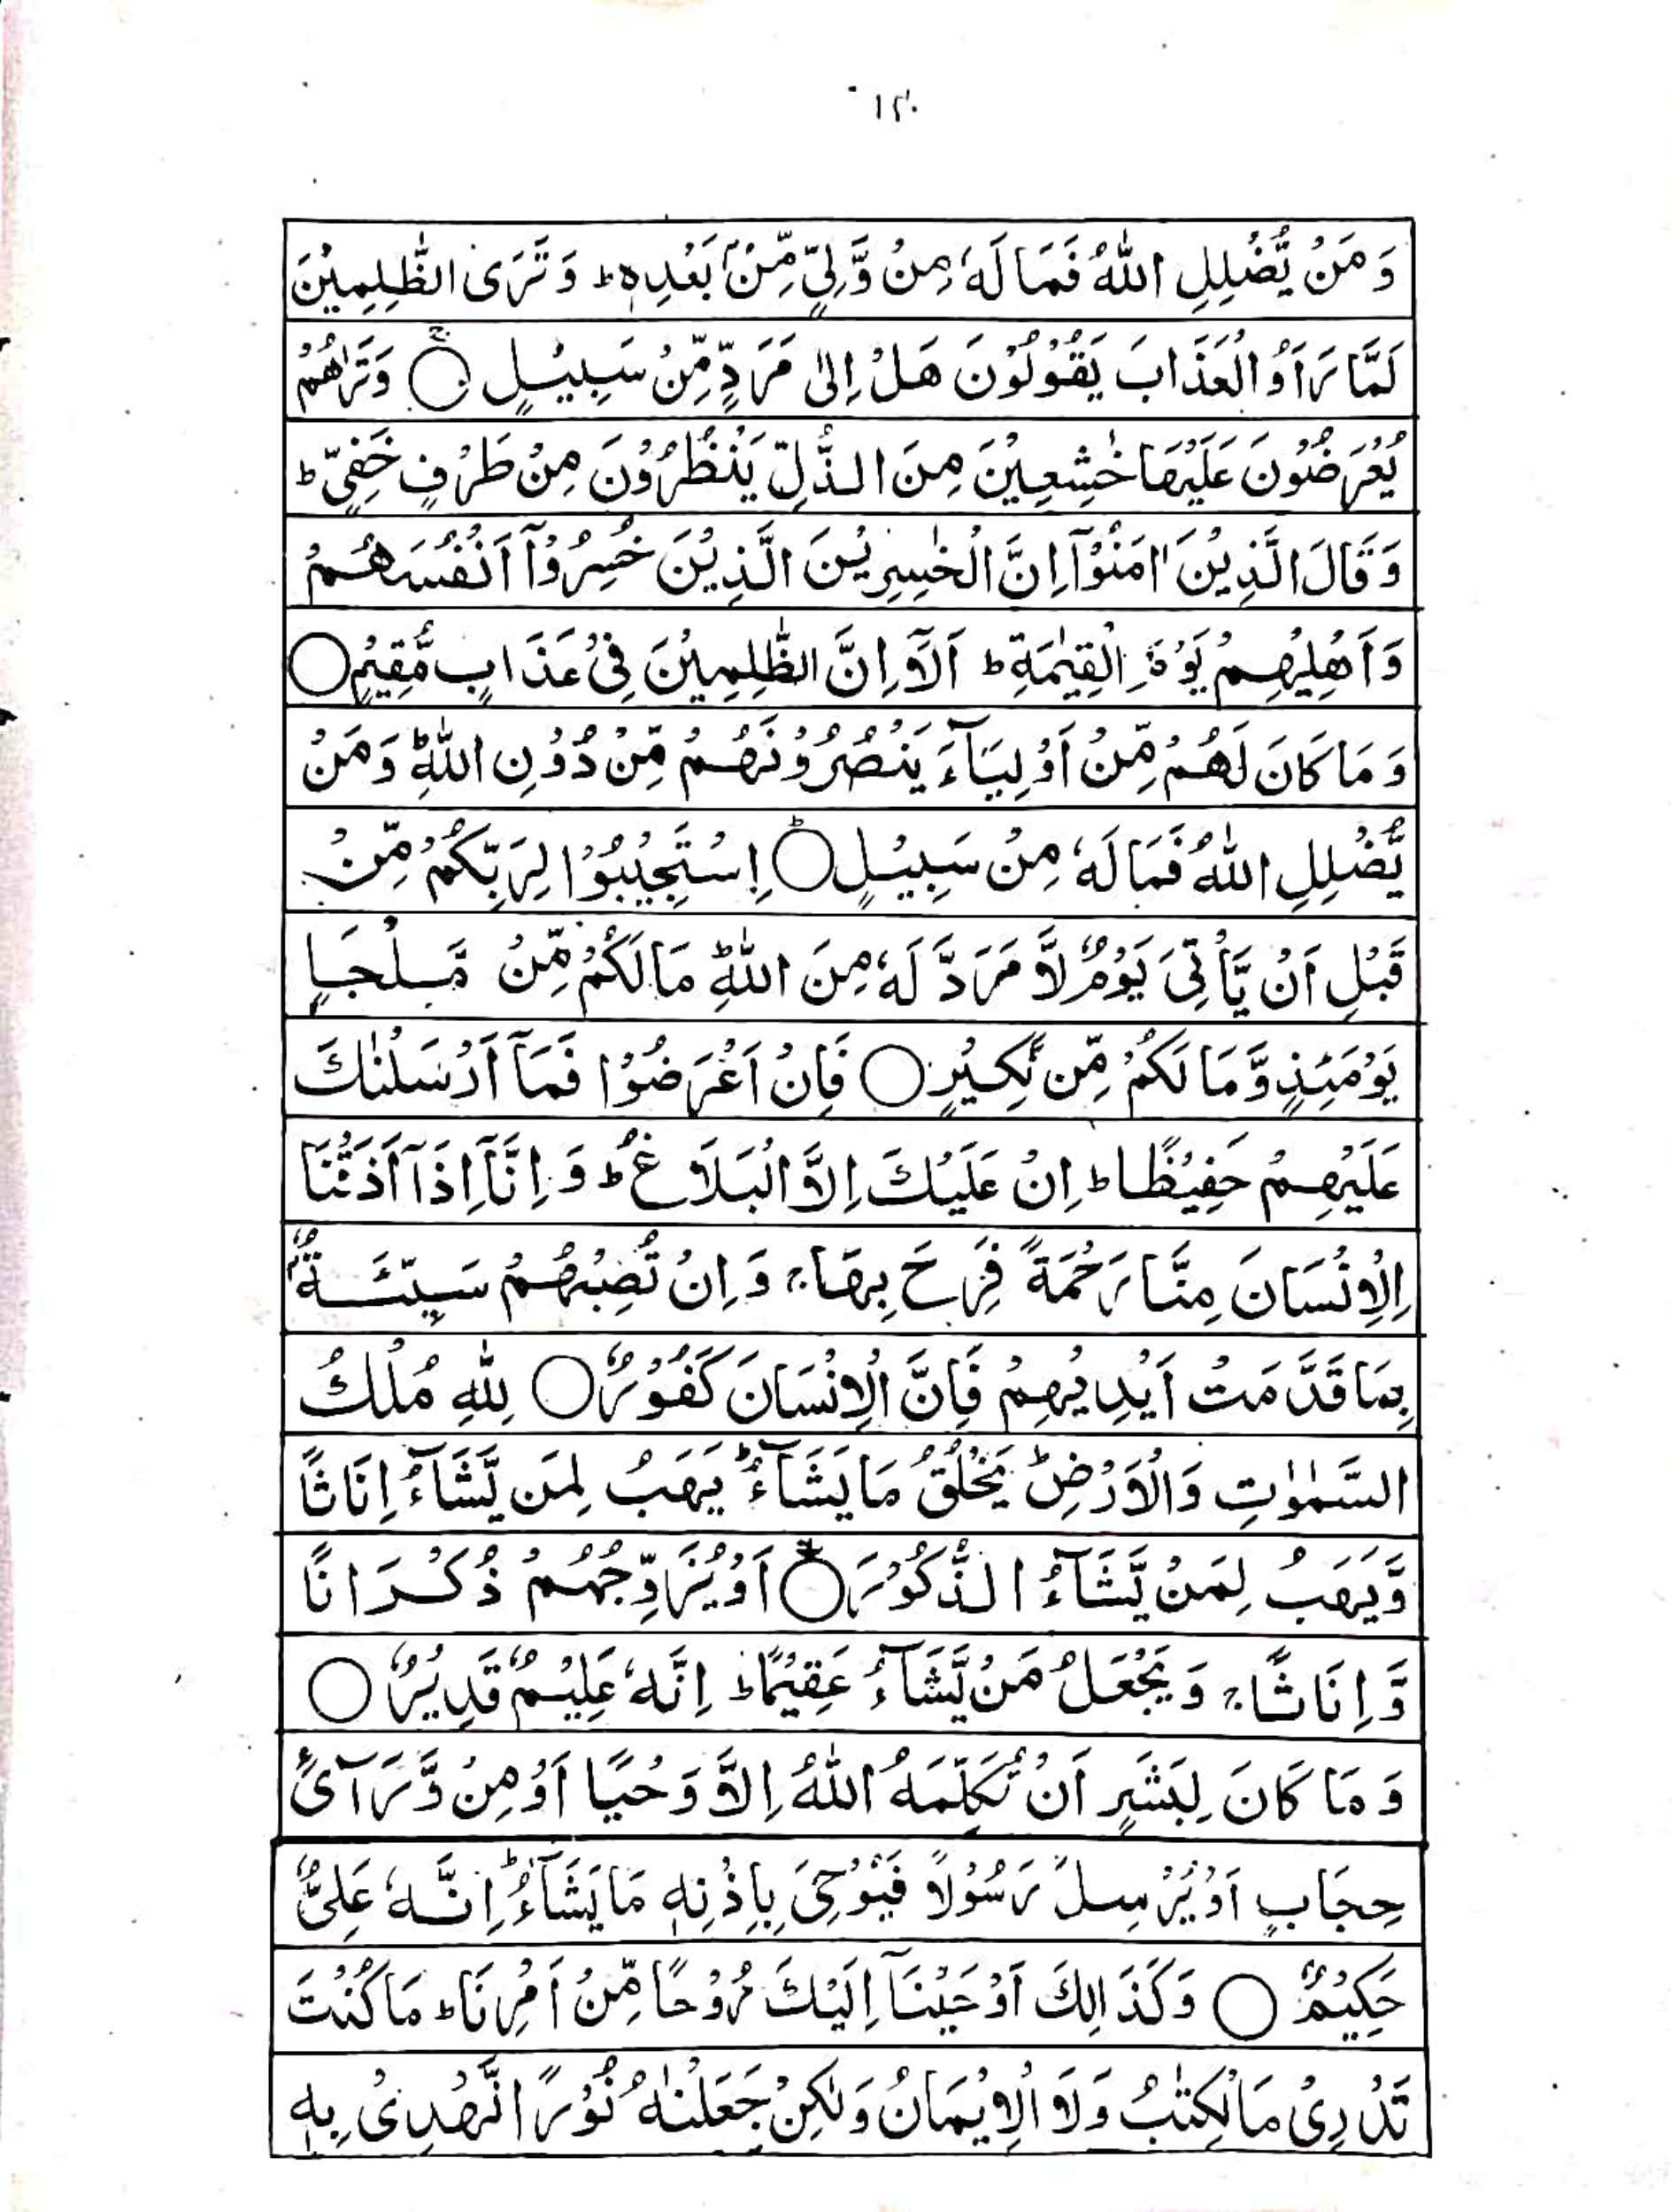 ١٢٠
وَمَنْ يُّضْلِلِ اللّٰهُ فَمَا لَهٗ مِنْ وَّلِيٍّ مِّنْۢ بَعْدِهٖ ؕ وَتَرَى الظّٰلِمِيْنَ
لَمَّا رَاَوُ الْعَذَابَ يَقُوْلُوْنَ هَلْ اِلٰى مَرَدٍّ مِّنْ سَبِيْلٍ ○ وَتَرٰىهُمْ
يُعْرَضُوْنَ عَلَيْهَا خٰشِعِيْنَ مِنَ الذُّلِّ يَنْظُرُوْنَ مِنْ طَرْفٍ خَفِيٍّ ؕ
وَقَالَ الَّذِيْنَ اٰمَنُوْۤا اِنَّ الْخٰسِرِيْنَ الَّذِيْنَ خَسِرُوْۤا اَنْفُسَهُمْ
وَاَهْلِيْهِمْ يَوْمَ الْقِيٰمَةِ ؕ اَلَاۤ اِنَّ الظّٰلِمِيْنَ فِيْ عَذَابٍ مُّقِيْمٍ ○
وَمَا كَانَ لَهُمْ مِّنْ اَوْلِيَآءَ يَنْصُرُوْنَهُمْ مِّنْ دُوْنِ اللّٰهِ ؕ وَمَنْ
يُّضْلِلِ اللّٰهُ فَمَا لَهٗ مِنْ سَبِيْلٍ ○ اِسْتَجِيْبُوْا لِرَبِّكُمْ مِّنْ
قَبْلِ اَنْ يَّاْتِيَ يَوْمٌ لَّا مَرَدَّ لَهٗ مِنَ اللّٰهِ ؕ مَا لَكُمْ مِّنْ مَّلْجَاٍ
يَوْمَئِذٍ وَّمَا لَكُمْ مِّنْ نَّكِيْرٍ ○ فَاِنْ اَعْرَضُوْا فَمَاۤ اَرْسَلْنٰكَ
عَلَيْهِمْ حَفِيْظًا ؕ اِنْ عَلَيْكَ اِلَّا الْبَلَاغُ ؕ وَاِنَّاۤ اِذَاۤ اَذَقْنَا
الْاِنْسَانَ مِنَّا رَحْمَةً فَرِحَ بِهَا ۚ وَاِنْ تُصِبْهُمْ سَيِّئَةٌۢ
بِمَا قَدَّمَتْ اَيْدِيْهِمْ فَاِنَّ الْاِنْسَانَ كَفُوْرٌ ○ لِلّٰهِ مُلْكُ
السَّمٰوٰتِ وَالْاَرْضِ ؕ يَخْلُقُ مَا يَشَآءُ ؕ يَهَبُ لِمَن يَّشَآءُ اِنَاثًا
وَّيَهَبُ لِمَنْ يَّشَآءُ الذُّكُوْرَ ○ اَوْ يُزَوِّجُهُمْ ذُكْرَانًا
وَّاِنَاثًا ۚ وَيَجْعَلُ مَنْ يَّشَآءُ عَقِيْمًا ؕ اِنَّهٗ عَلِيْمٌ قَدِيْرٌ ○
وَمَا كَانَ لِبَشَرٍ اَنْ يُّكَلِّمَهُ اللّٰهُ اِلَّا وَحْيًا اَوْ مِنْ وَّرَآئِ
حِجَابٍ اَوْ يُرْسِلَ رَسُوْلًا فَيُوْحِيَ بِاِذْنِهٖ مَا يَشَآءُ ؕ اِنَّهٗ عَلِيٌّ
حَكِيْمٌ ○ وَكَذَالِكَ اَوْحَيْنَاۤ اِلَيْكَ رُوْحًا مِّنْ اَمْرِنَا ؕ مَا كُنْتَ
تَدْرِيْ مَا الْكِتٰبُ وَلَا الْاِيْمَانُ وَلٰكِنْ جَعَلْنٰهُ نُوْرًا نَّهْدِيْ بِهٖ